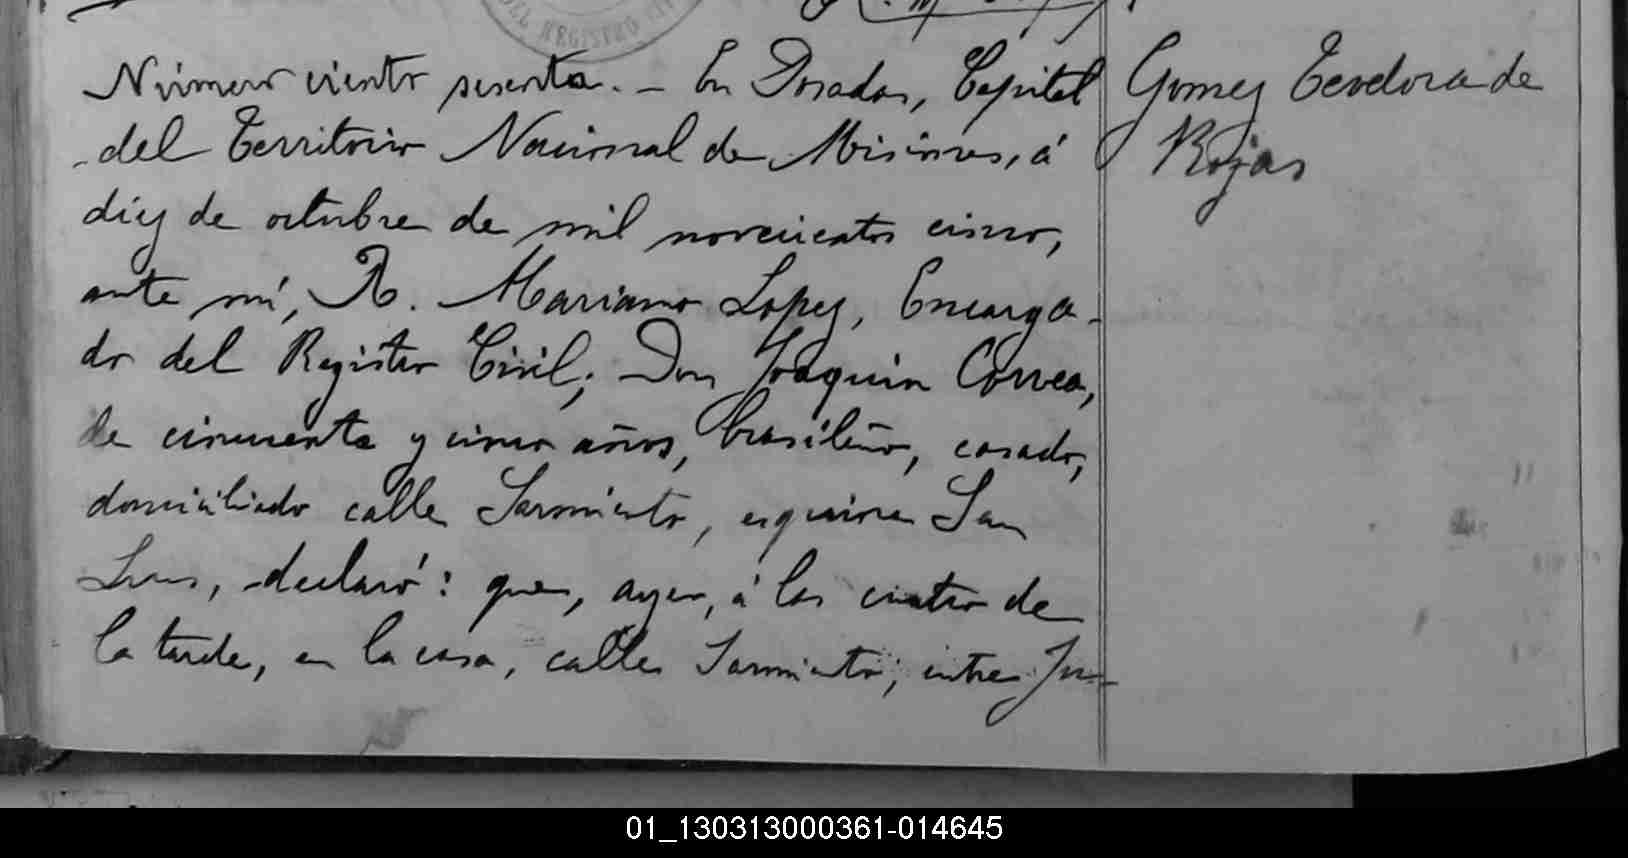 DEL REGISTRO CIVIL
Número ciento sesenta. - En Posadas, Capital
del Territorio Nacional de Misiones, á
diez de octubre de mil novecientos cinco,
ante mí, R. Mariano Lopez, Encarga-
do del Registro Civil; Don Joaquin Correa,
de cincuenta y cinco años, brasileño, casado,
domiciliado calle Sarmiento, esquina San
Luis, declaró: que, ayer, á las cuatro de
la tarde, en la casa, calle Sarmiento, entre Ju-
Gomez Teodora de
Rojas
01_130313000361-014645